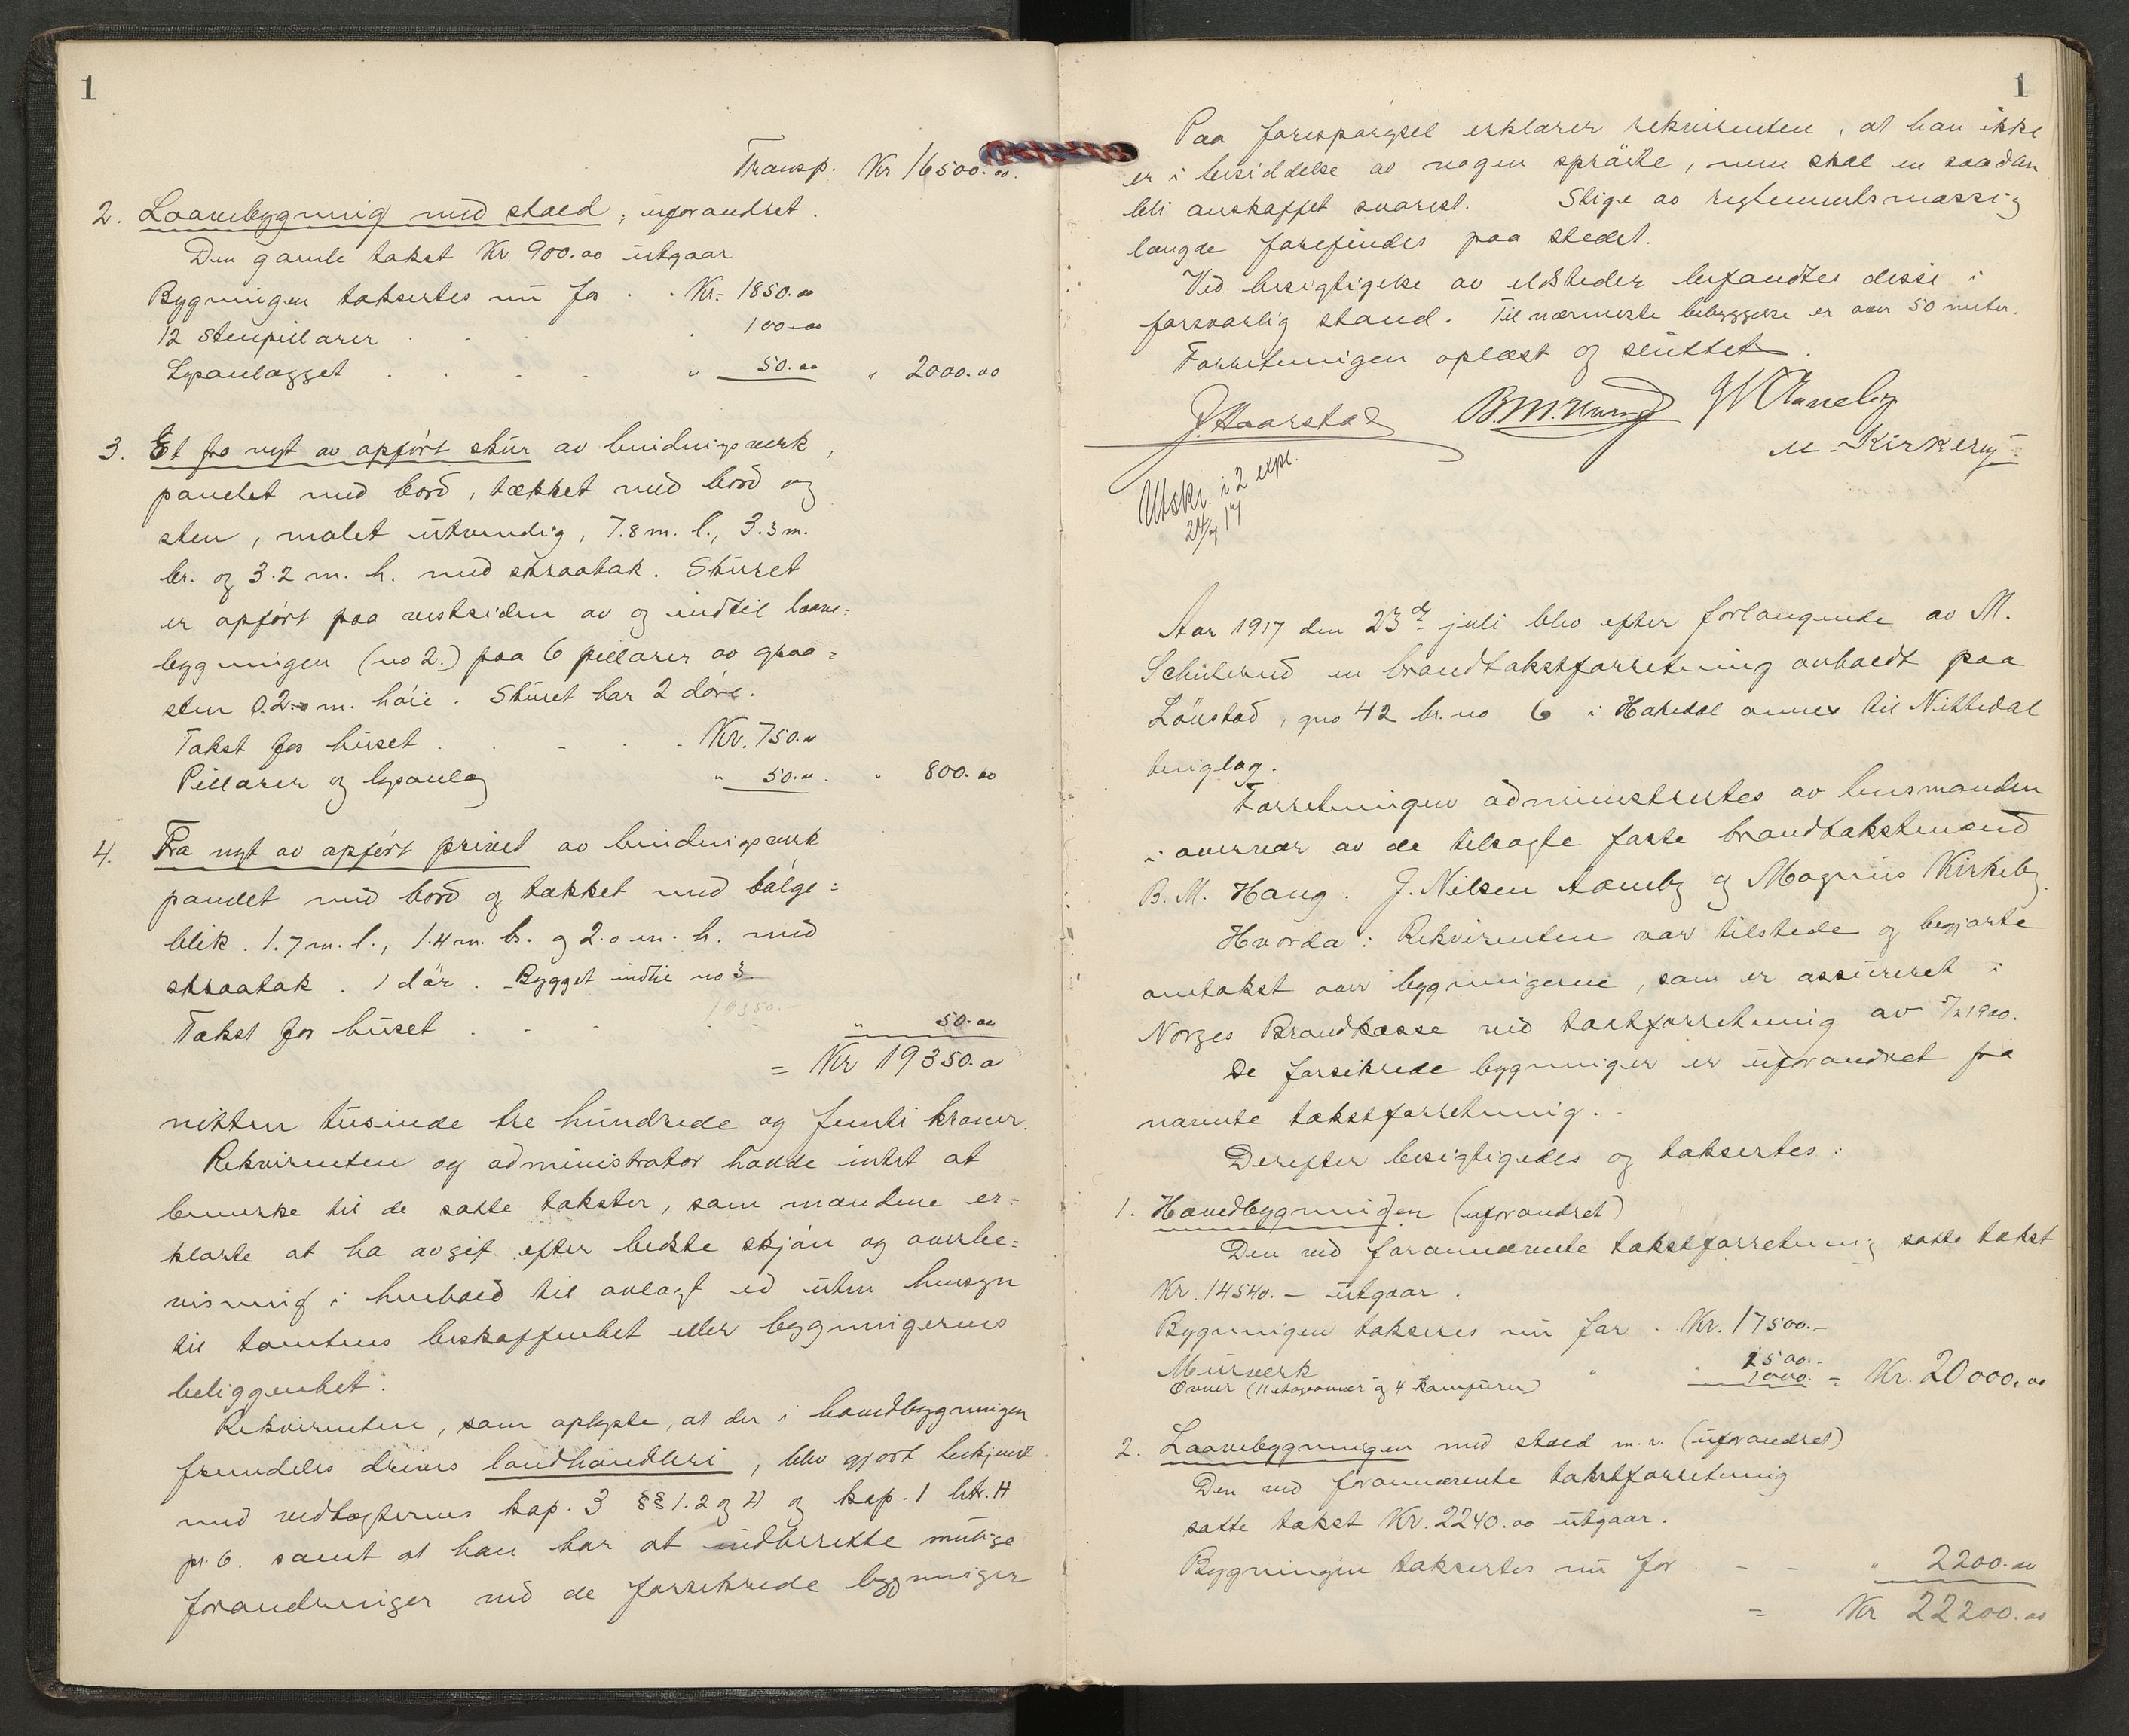 1
Transp. Kr 16500.00.
2. Laavebygning med stald, uforandret.
Den gamle takst Kr. 900.00 utgaar
Bygningen takseres nu for . . Kr. 1850.00
12 stenpillarer . . . . 100.00
Lysanlægget . . . . " 50.00 " 2000.00
3. Et fra nyt av opført skur av bindingsverk,
panelet med bord, tækket med bord og
sten, malet utvendig, 7.8 m. l., 3.3 m.
br. og 3.2 m. h. med skraatak. Skuret
er opført paa vestsiden av og indtil laave=
bygningen (no 2.) paa 6 pillarer av graa=
sten 0.20 m. høie. Skuret har 2 døre.
Takst for huset . . . . Kr. 750.00
Pillarer og lysanlæg " 50.00. " 800.00
4. Fra nyt av opført privet av bindingsverk
panelet med bord og tækket med bølge=
blik. 1.7 m. l., 1.4 m. b. og 2.0 m. h. med
skraatak. 1 dør. Bygget indtil no 3
19350.
Takst for huset . . . . " 50.00
= Kr 19350.00
nitten tusinde tre hundrede og femti kroner.
Rekvirenten og administrator hadde intet at
bemerke til de satte takster, som mændene er=
klærte at ha avgit efter bedste skjøn og overbe=
visning i henhold til avlagt ed uten hensyn
til tomtens beskaffenhet eller bygningernes
beliggenhet.
Rekvirenten, som oplyste, at der i hovedbygningen
fremdeles drives landhandleri, blev gjort bekjendt
med vedtægternes kap. 3 §§ 1.2 og 4 og kap. 1 litr. H
pt. 6. samt at han har at indberette mulige
forandringer ved de forsikrede bygninger
1
Paa forespørgsel erklærer rekvirenten, at han ikke
er i besiddelse av nogen sprøite, men skal en saadan
bli anskaffet snarest. Stige av reglementsmæssig
længde forefindes paa stedet.
Ved besigtigelse av ildsteder befandtes disse i
forsvarlig stand. Til nærmeste bebyggelse er over 50 meter.
Forretningen oplæst og sluttet.
J. Haarstad B. M. Haug J N Aaneby
M. Kirkeby
Utskr. i 2 expl.
24/7 17
Aar 1917 den 23de juli blev efter forlangende av M.
Schulerud en brandtakstforretning avholdt paa
Lønstad, gno 42 br. no 6 i Hakedal annex til Nittedal
tinglag.
Forretningen administrertes av lensmanden
i overvær av de tilsagte faste brandtakstmænd
B. M. Haug. J. Nilsen Aaneby og Magnus Kirkeby.
Hvorda: Rekvirenten var tilstede og begjærte
omtakst over bygningerne, som er assureret i
Norges Brandkasse ved takstforretning av 5/2 1900.
De forsikrede bygninger er uforandret fra
nævnte takstforretning.
Derefter besigtigedes og taksertes:
1. Hovedbygningen (uforandret)
Den ved forannævnte takstforretning satte takst
Kr. 14540.- utgaar.
Bygningen takseres nu for . Kr. 17500.-
Murverk " " 1500.-
Ovner (11 etageovner og 4 komfurer) 1000. = Kr. 20000.00
2. Laavebygningen med stald m. v. (uforandret)
Den ved forannævnte takstforretning
satte takst Kr. 2240.00 utgaar.
Bygningen taksertes nu for . - - " 2200.00
= Kr 22200.00